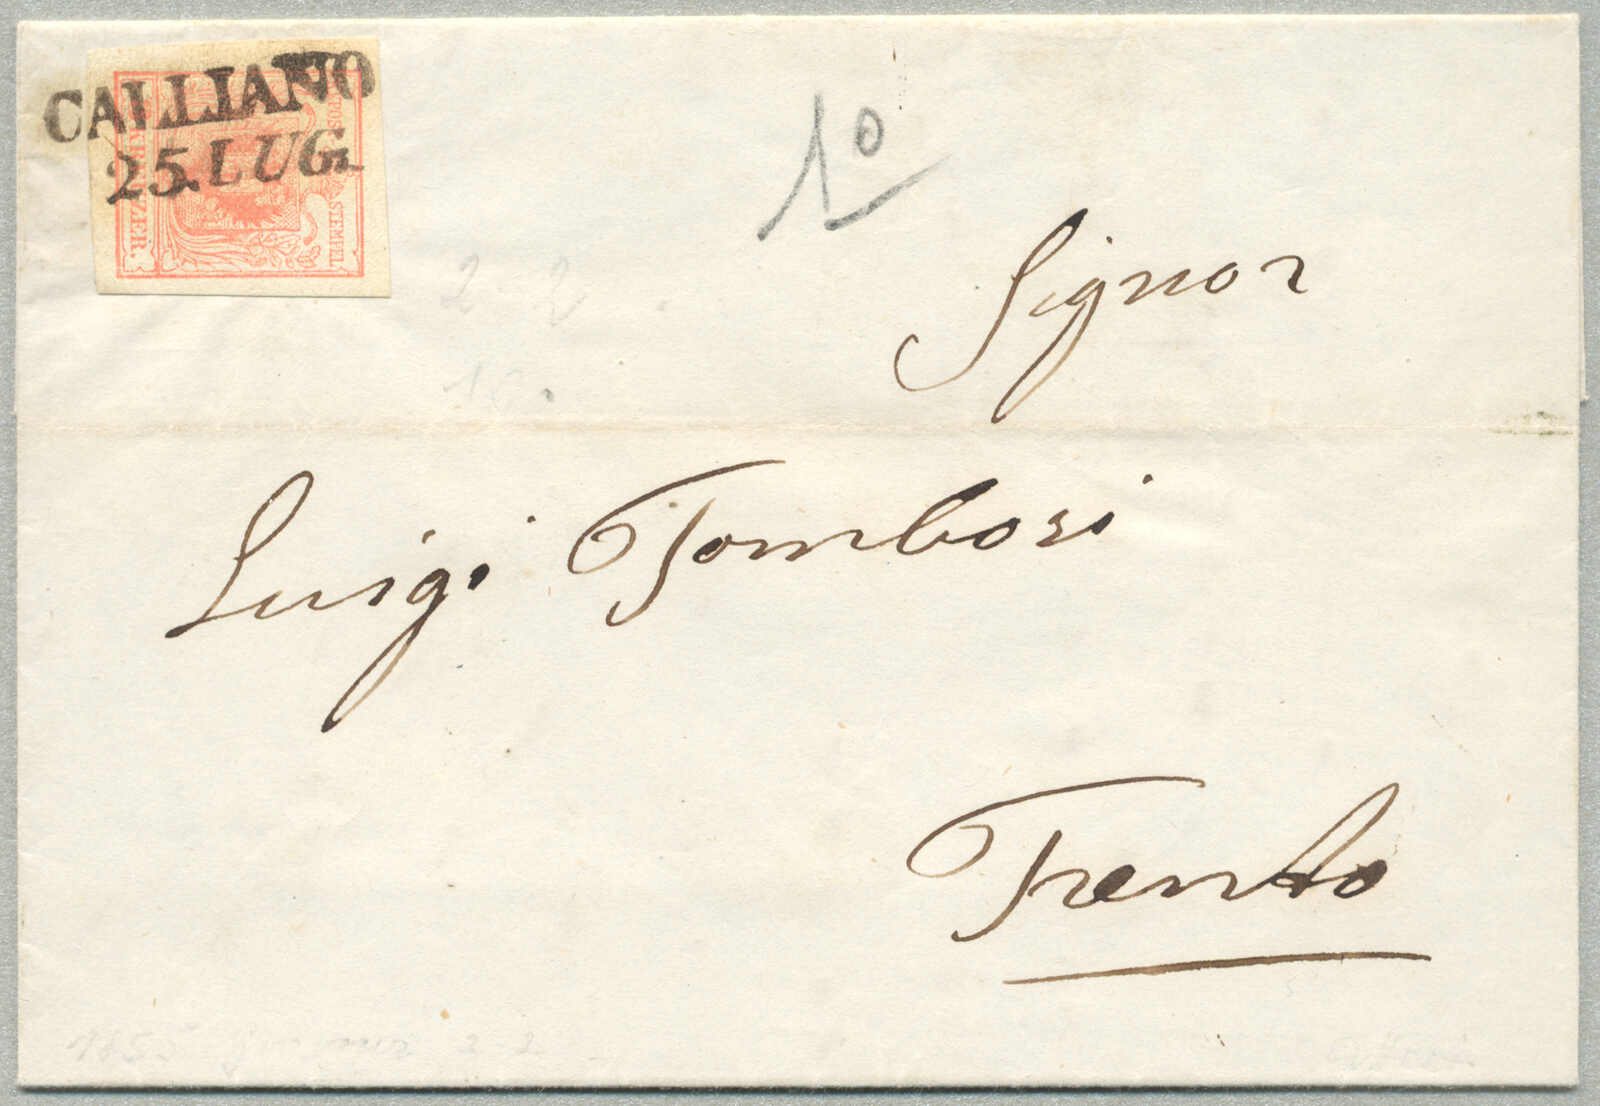 CALLIANO
25. LUG.
KREUZER.
STEMPEL
1º
Signor
Luigi Tambosi
Trento